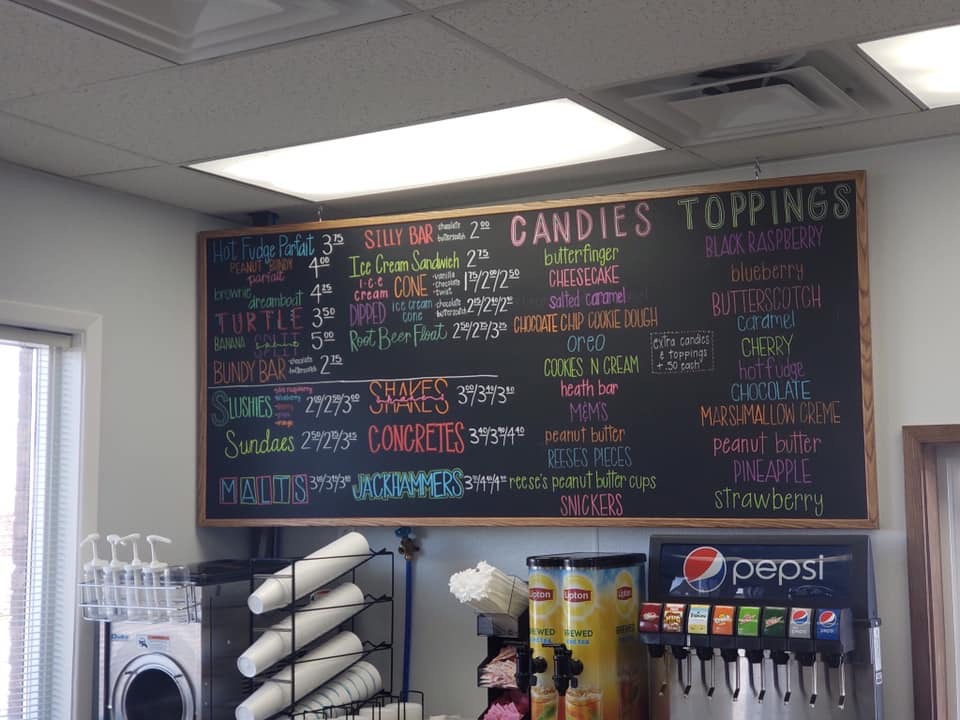 Hot Fudge Parfait 3.75
PEANUT BUNDY parfait 4.00
brownie dreamboat 4.25
TURTLE 3.50
BANANA SPLIT 5.00
BUNDY BAR chocolate butterscotch 2.75
SILLY BAR chocolate butterscotch 2.00
Ice Cream Sandwich 2.75
ice cream CONE vanilla chocolate twist 1.75/2.00/2.50
DIPPED ice cream cone chocolate butterscotch
Root Beer Float 2.50/2.75/3.25
SLUSHIES blue raspberry
2.00/2.50/3.00
Sundaes 2.50/2.75/3.25
MALTS
SHAKES
CONCRETES 3.40/3.90/4.40
JACKHAMMERS
CANDIES
butterfinger
CHEESECAKE
salted caramel
CHOCOLATE CHIP COOKIE DOUGH
OREO
COOKIES N CREAM
heath bar
M&M'S
peanut butter
REESE'S PIECES
reese's peanut butter cups
SNICKERS
extra candies
& toppings
+.50 each
TOPPINGS
BLACK RASPBERRY
blueberry
BUTTERSCOTCH
caramel
CHERRY
hot fudge
CHOCOLATE
MARSHMALLOW CREME
peanut butter
PINEAPPLE
strawberry
pepsi
Lipton
Lipton
Lipton
BREWED
BREWED
ICED TEA